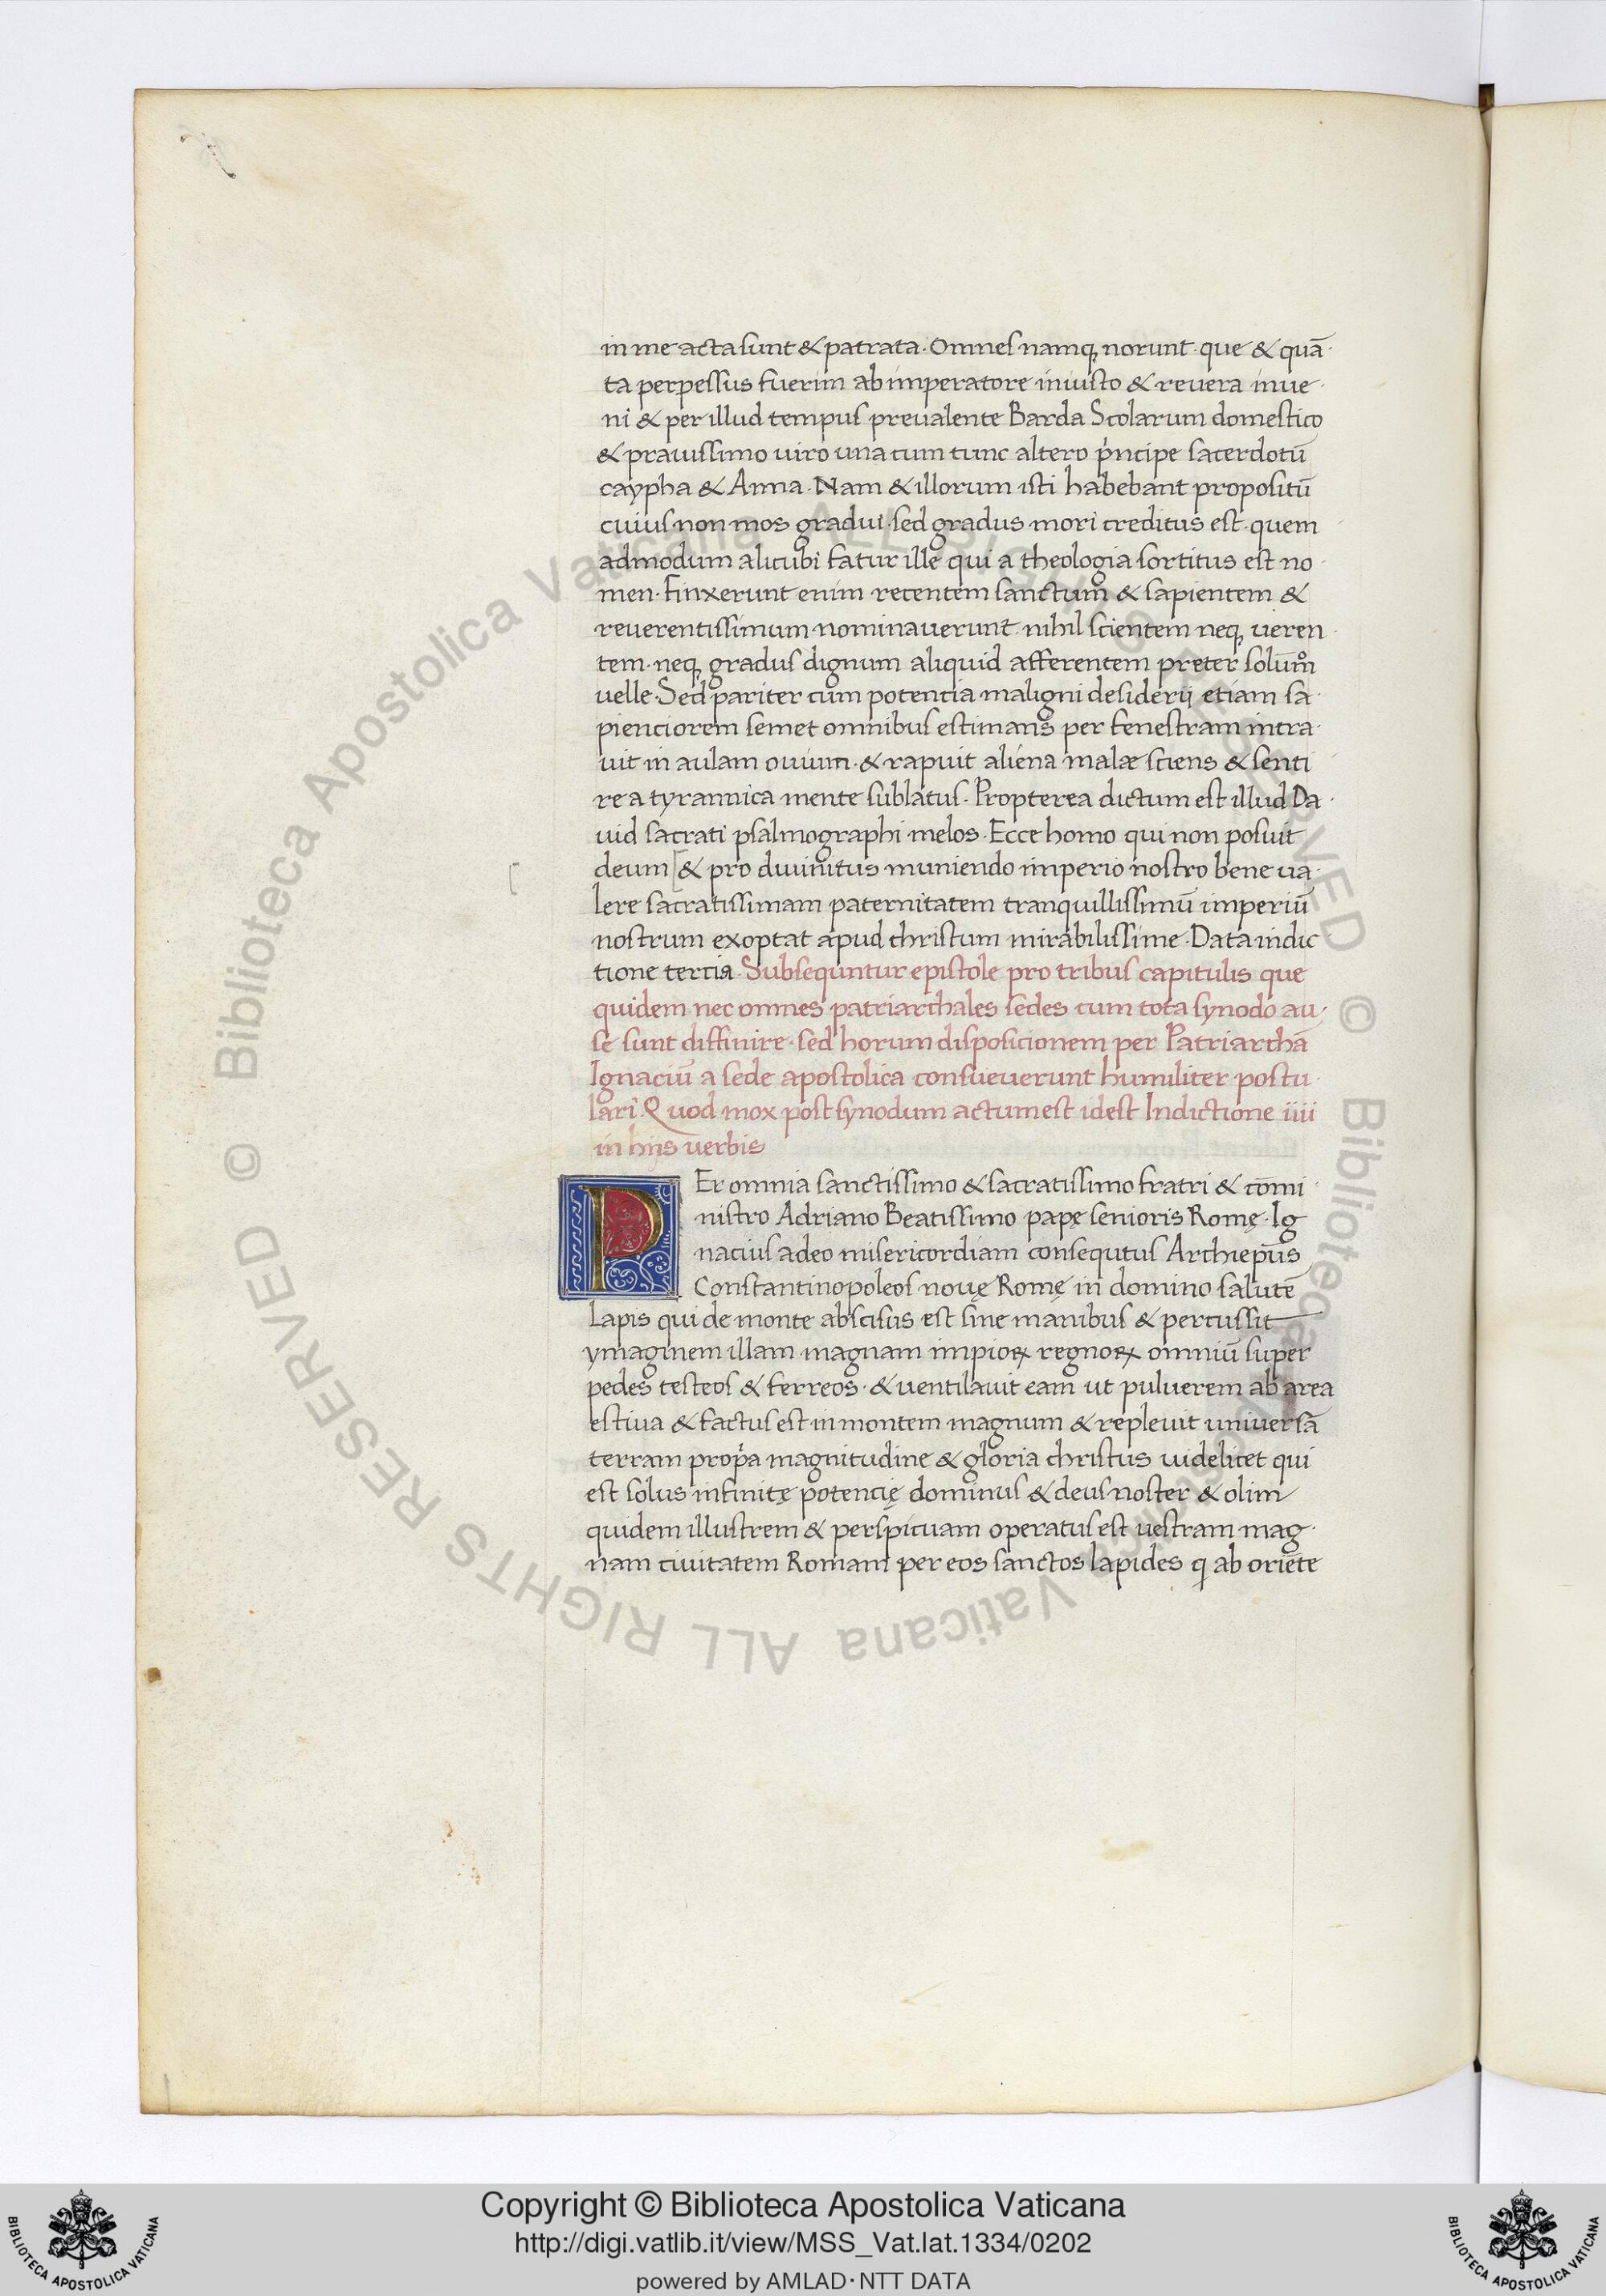 in me acta sunt & patrata. Omnes namq; norunt. que & quā
ta perpessus fuerim ab imperatore iniusto & reuera inue
ni & per illud tempus preualente Barda Scolarum domestico
& prauissimo uiro una cum tunc altero pͥncipe sacerdotū
caypha & Anna. Nam & illorum isti habebant propositū
cuius non mos gradui. sed gradus mori creditus est. quem
admodum alicubi fatur ille qui a theologia sortitus est no
men. Finxerunt enim recentem sanctum & sapientem &
reuerentissimum nominauerunt. nihil scientem neq; ueren
tem. neq; gradus dignum aliquid afferentem preter solum̄
uelle. Sed pariter cum potencia maligni desiderij etiam sa
pienciorem semet omnibus estimans per fenestram intra
uit in aulam ouium. & rapuit aliena malæ sciens & senti
re a tyrannica mente sublatus. Propterea dictum est illud Da
uid sacrati psalmographi melos. Ecce homo qui non posuit
deum [& pro diuinitus muniendo imperio nostro bene ua
lere sacratissimam paternitatem tranquillissimū imperiū
nostrum exoptat apud christum mirabilissime. Data indic
tione tercia. Subsequntur epistole pro tribus capitulis que
quidem nec omnes patriarchales sedes cum tota synodo au
se sunt diffinire. sed horum disposicionem per Patriarchā
Ignaciū a sede apostolica consueuerunt humiliter postu
lari. Quod mox post synodum actum est idest Indictione iiii
in hijs uerbis
PEr omnia sanctissimo & sacratissimo fratri & cōmi
nistro Adriano Beatissimo papę senioris Romę. Ig
nacius a deo misericordiam consequtus Archiepūs
Constantinopoleos nouę Romę in domino salutē
Lapis qui de monte abscisus est sine manibus & percussit
ymaginem illam magnam impioꝝ regnoꝝ omniū super
pedes testeos & ferreos. & uentilauit eam ut puluerem ab area
estiua & factus est in montem magnum & repleuit uniuersā
terram propͥa magnitudine & gloria christus uidelicet qui
est solus infinitę potencię dominus & deus noster & olim
quidem illustrem & perspicuam operatus est uestram mag
nam ciuitatem Romam per eos sanctos lapides q ab oriēte
© Biblioteca Apostolica Vaticana ALL RIGHTS RESERVED © Biblioteca Apostolica Vaticana ALL RIGHTS RESERVED
Copyright © Biblioteca Apostolica Vaticana
http://digi.vatlib.it/view/MSS_Vat.lat.1334/0202
powered by AMLAD·NTT DATA
BIBLIOTECA APOSTOLICA VATICANA
BIBLIOTECA APOSTOLICA VATICANA